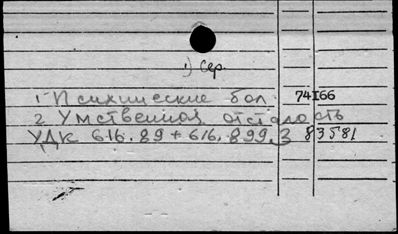 1) Сер.
1 Психические бол. 74166
2 Умственная отсталость
УДК 616.89 + 616.899.3 83581